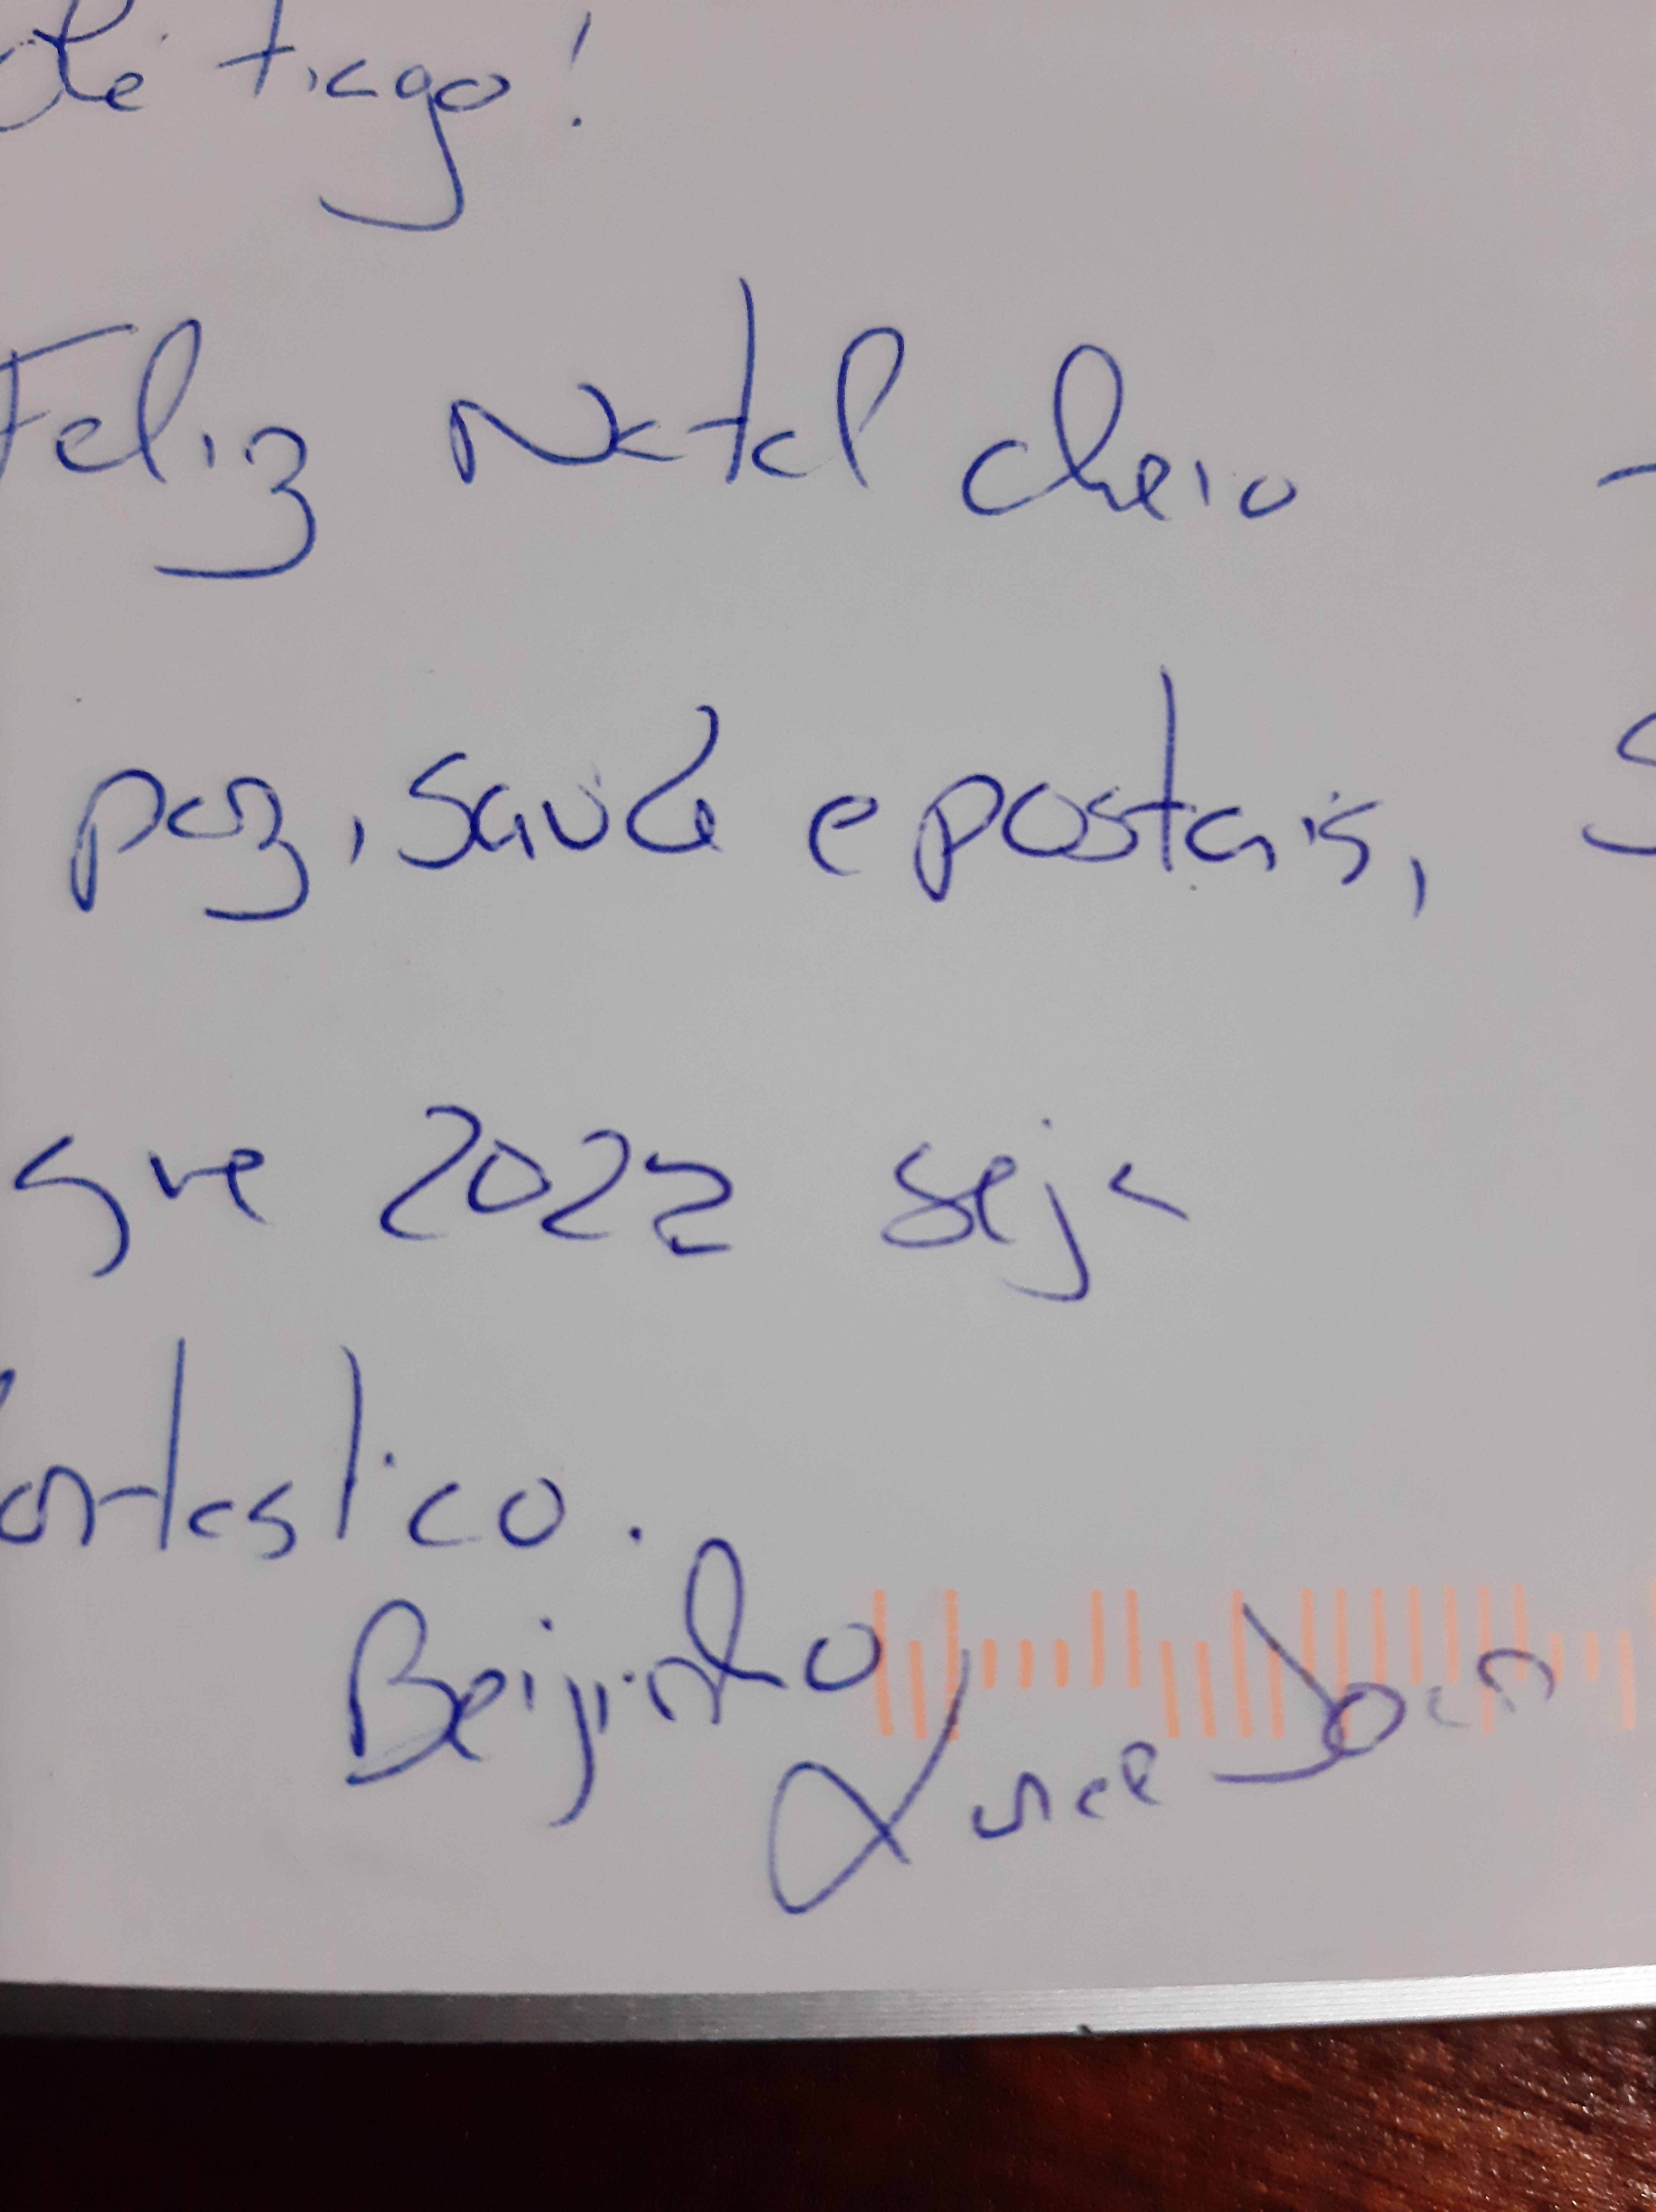 Olá tiago!
Feliz Natal cheio
paz, saúde e postais,
que 2022 seja
fantástico.
Beijinho